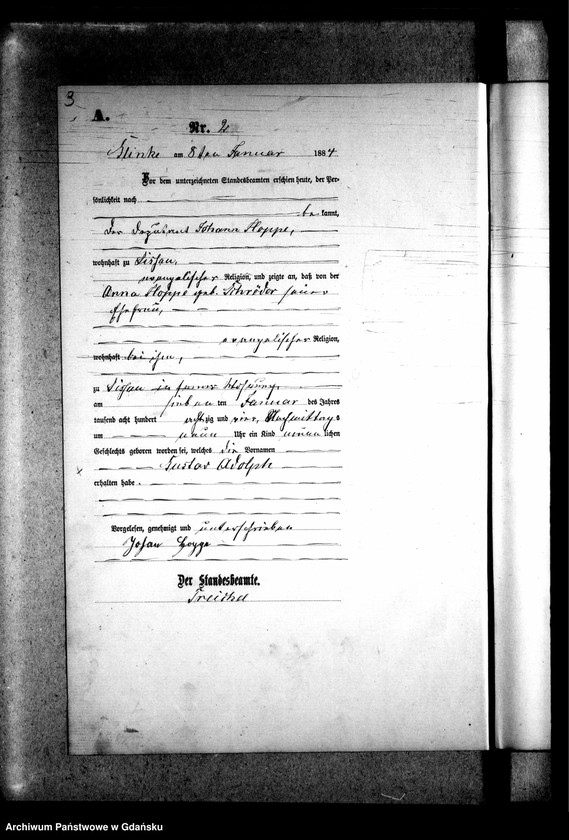 3
A.
Nr. 2
am 8ten Januar 1884
Vor dem unterzeichneten Standesbeamten erschien heute, der Per-
sönlichkeit nach
be kannt,
der Johann Hoppe,
wohnhaft zu Lissau,
evangelischer Religion, und zeigte an, daß von der
Anna Hoppe geb. Schröder seiner
Ehefrau,
evangelischer Religion,
wohnhaft bei ihm,
zu Lissau in seiner Wohnung,
am sieben ten Januar des Jahres
tausend acht hundert achtzig und vier, Nachmittags
um neun Uhr ein Kind männ lichen
Geschlechts geboren worden sei, welches die Vornamen
Gustav Adolph
erhalten habe.
Vorgelesen, genehmigt und unterschrieben
Johan Hoppe
Der Standesbeamte.
Archiwum Państwowe w Gdańsku